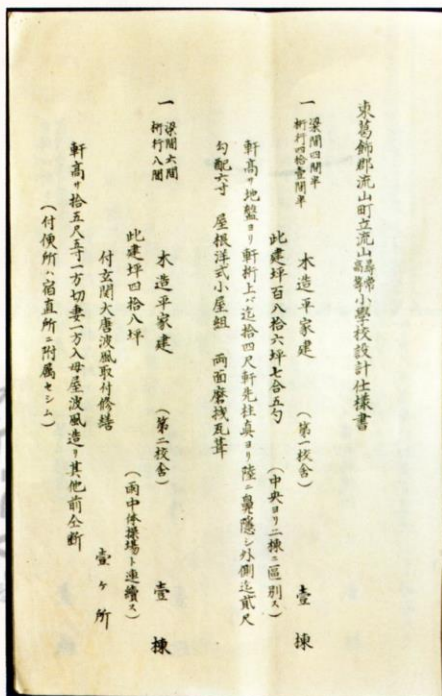 東葛飾郡流山町立流山尋常高等小學校設計仕様書
一 梁間四間半 桁行四拾壹間半 木造平家建 (第一校舎) 壹棟
此建坪百八拾六坪七合五勺 (中央ヨリ二棟ニ區別ス)
軒高サ地盤ヨリ軒桁上バ迄拾四尺軒先柱真ヨリ陸ニ鼻隠シ外側迄貳尺
勾配六寸 屋根洋式小屋組 両面磨桟瓦葺
一 梁間六間 桁行八間 木造平家建 (第二校舎) 壹棟
此建坪四拾八坪 (雨中体操場ト連續ス)
付玄関大唐波風取付修繕 壹ヶ所
軒高サ拾五尺五寸一方切妻一方入母屋波風造リ其他前仝断
(付便所ハ宿直所ニ附属セシム)